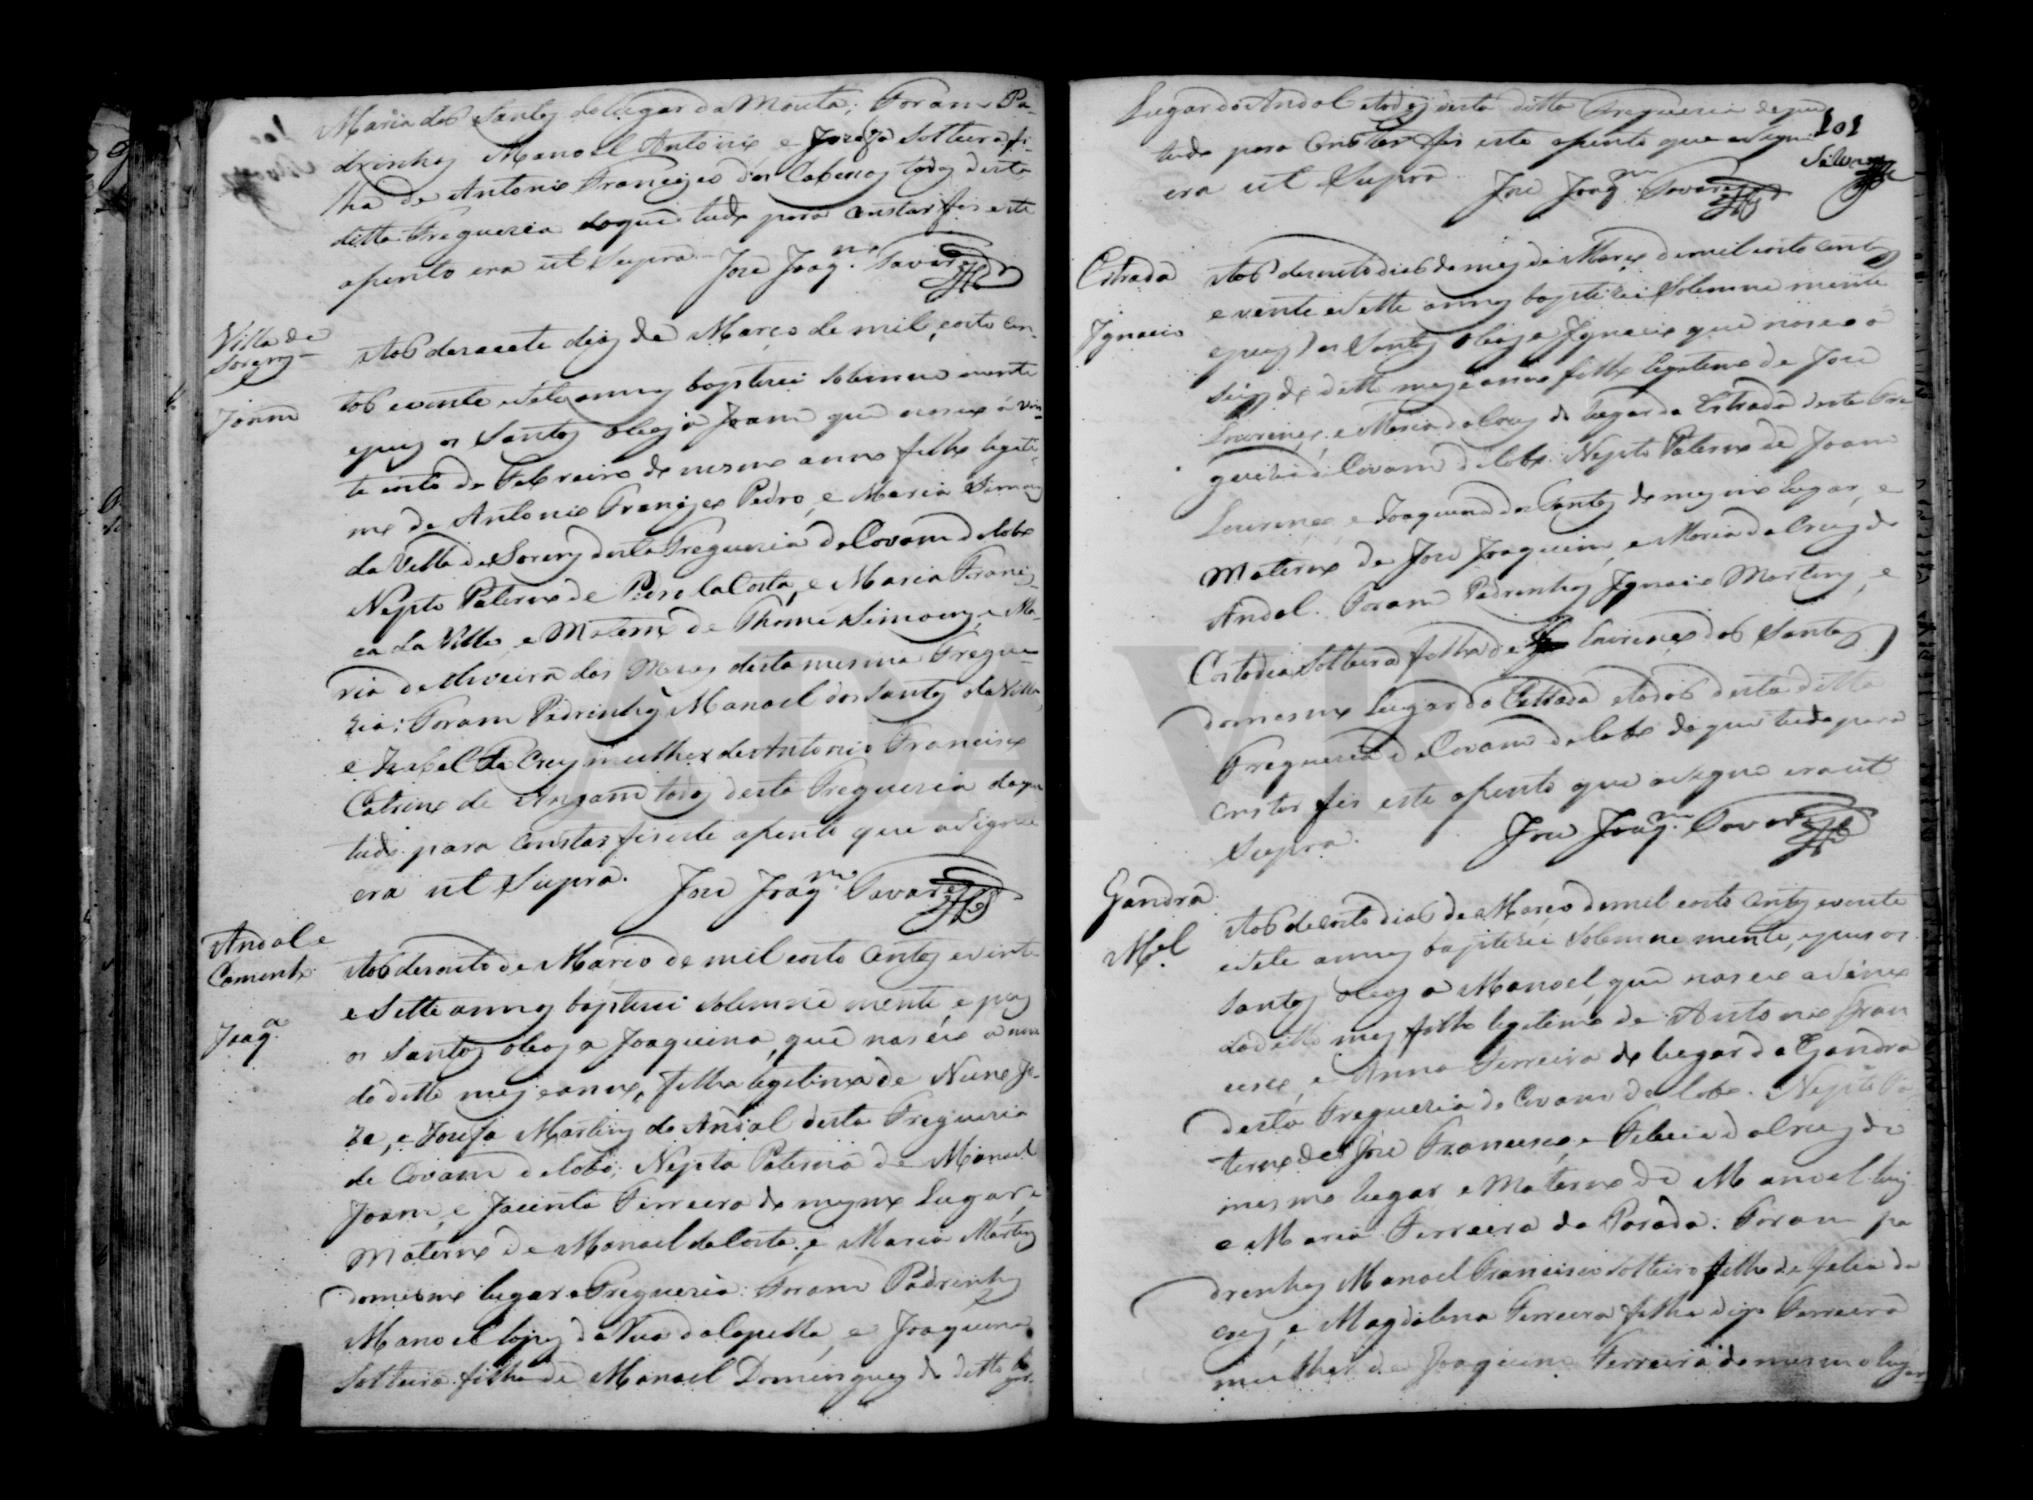 Maria dos Santos do lugar da Mouta; Foram Pa-
drinhos Manoel Antonio e Josefa Solteira fi-
lha de Antonio Francisco dos Cabecos todos desta
ditta Freguezia doque tudo para constar fis este
asento era ut Supra. Joze Joaq.m Tavares
Villa de
Sorens
Joam
Aos desasete dias de Março de mil, e oito cen-
tos e vinte e sete annos baptizei solemne mente
e puz os Santos oleos a Joam que nasceo a vin-
te oito de Febreiro do mesmo anno filho legiti-
mo de Antonio Francisco Pedro, e Maria Simoes
da Villa de Sorens desta Freguezia de Covam do lobo
Nepto Paterno de Pedro da Costa, e Maria Francis-
ca da Villa, e Materno de Thome Simoens, e Ma-
ria de Oliveira das Mesas desta mesma Fregue-
zia: Foram Padrinhos Manoel dos Santos da Villa,
e Izabel da Cruz mulher de Antonio Francisco
Catrino de Angam todos desta Freguezia doque
tudo para constar fis este asento que asigno
era ut Supra. Joze Joaq.m Tavares
Andal e
Joaq.a
Aos desouto de Março de mil e oito centos e vinte
e Sette annos baptizei solemne mente, e puz
os Santos oleos a Joaquina, que nasceo a nove
do ditto mes e anno, filha legitima de Nuno Jo-
ze, e Josefa Martins do Andal desta Freguezia
de Covam do lobo; Nepta Paterna de Manoel
Joam, e Jacinta Ferreira do mesmo Lugar, e
Materno de Manoel da Costa, e Maria Martins
do mesmo lugar e Freguezia: Foram Padrinhos
Manoel Lopes da Vua da Capella, e Joaquina
Solteira filha de Manoel Domingues do ditto lu-
gar
101
Lugar do Andal e todos desta ditta Freguezia doque
tudo para constar fis este asento que asigno
era ut Supra. Joze Joaq.m Tavares
Estrada
Ignacio
Aos desouto dias do mes de Março de mil e oito centos
e vente e sette annos baptizei Solemne mente
e puz os Santos oleos a Ignacio que nasceo a
seis do ditto mes e anno filho legitimo de Joze
Lourenço, e Maria da Cruz do lugar da Estrada desta Fre
guezia de Covam do lobo Nepto Paterno de Joam
Lourenço, e Joaquina dos Santos do mesmo lugar, e
Materno de Joze Joaquim, e Maria da Cruz do
Andal. Foram Padrinhos Ignacio Martins, e
Costodia Solteira filha de Lourenço dos Santos
do mesmo Lugar da Estrada e todos desta ditta
Freguezia de Covam do lobo do que tudo para
constar fis este asento que asigno era ut
Supra. Joze Joaq.m Tavares
Gandra
M.el
Aos desouto dias de Março de mil e oito centos e vinte
e sete annos baptizei solemne mente, e puz os
Santos oleos a Manoel, que nasceo a sinco
do ditto mes filho legitimo de Antonio Fran
cisco, e Anna Ferreira do lugar da Gandra
desta Freguezia de Covam do lobo. Nepto Pa
terno de Joze Francisco, e Felicia da Cruz do
mesmo lugar e Materno de Manoel Luiz
e Maria Ferreira da Parada: Foram pa
drinhos Manoel Francisco solteiro filho de Felicia da
Cruz, e Magdalena Ferreira filha digo Ferreira
mulher de Joaquim Ferreira do mesmo lugar
ADAVR